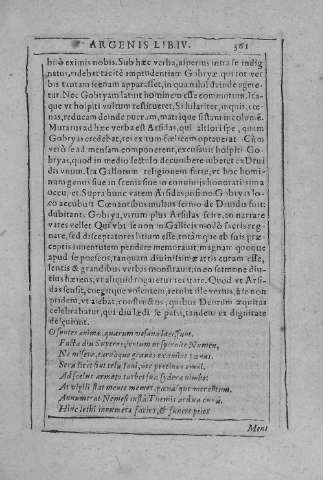 ARGENIS LIB IV. 361
bitiò eximis nobis. Sub hæc verba, asperius intra se indig
natus, ridebat tacitè impudentiam Gobryæ, qui tot ver
bis tantam scenam apparasset, in quam nihil deinde agere
tur. Nec Gobryam latuit hominem esse commotum. Ita-
que vt hospiti vultum restitueret, Si lubuit, inquit, cœ-
nas, reducam deinde puerum, matrique sistam incolumem.
Muratus ad hæc verba est Arsidas, qui altiori spe, quàm
Gobryas credebat, rei exitum felicem optauerat Cùm
verò se ad mensam componerent, excusauit hospiti Go-
bryas, quòd in medio lectulo decumbere iuberet ex Drui
dis vnum. Ita Gallorum religionem ferre, vt hoc homi-
num genus siue in scenis siue in conuiuiis honoratissima
occupet. Supra hunc vatem Arsidas, infimo Gobryas lo-
co accubuit Cœnantibus multus sermo de Druidis fuit:
dubitant. Gobrya, vtrum plus Arsidas scire, an narrare
vates vellet Qui vbi se non in Gallicis modò sacris regna-
re, sed disceptatores litium esse, totámque ab suis præ-
ceptis iuuentutem pendere memorauit, magnam quoque
apud se poeseos, tanquam diuinissimæ artis curam esse,
lentis & grandibus verbis monstrauit; in eo sermone diu-
tius hærens, vt aliquid rogaretur recitare. Quod vt Arsi-
das sensit, cuegitque volentem, recens ille versus, à se non
pridem, vt aiebat, constructos, quibus Deorum æquitas
celebrabatur, qui diu lædi se passi, tandem ex dignitate
desæuiunt.
O sontes animæ, quarum vesana lacessunt
Facta diu Superos; lentum ne spernite Numen,
Ne misero, tardóque graues examine pœnas.
Sera licet fiat tela Ioui, nec protinus omni
Ad scelus armato turbet sua sydera nimbo:
At vigili stat mente memor, pœnásque morantum
Annumerat Nemesi iusta Themis ardua cura.
Hinc lethi innumeræ facies, & funere peior
Ment